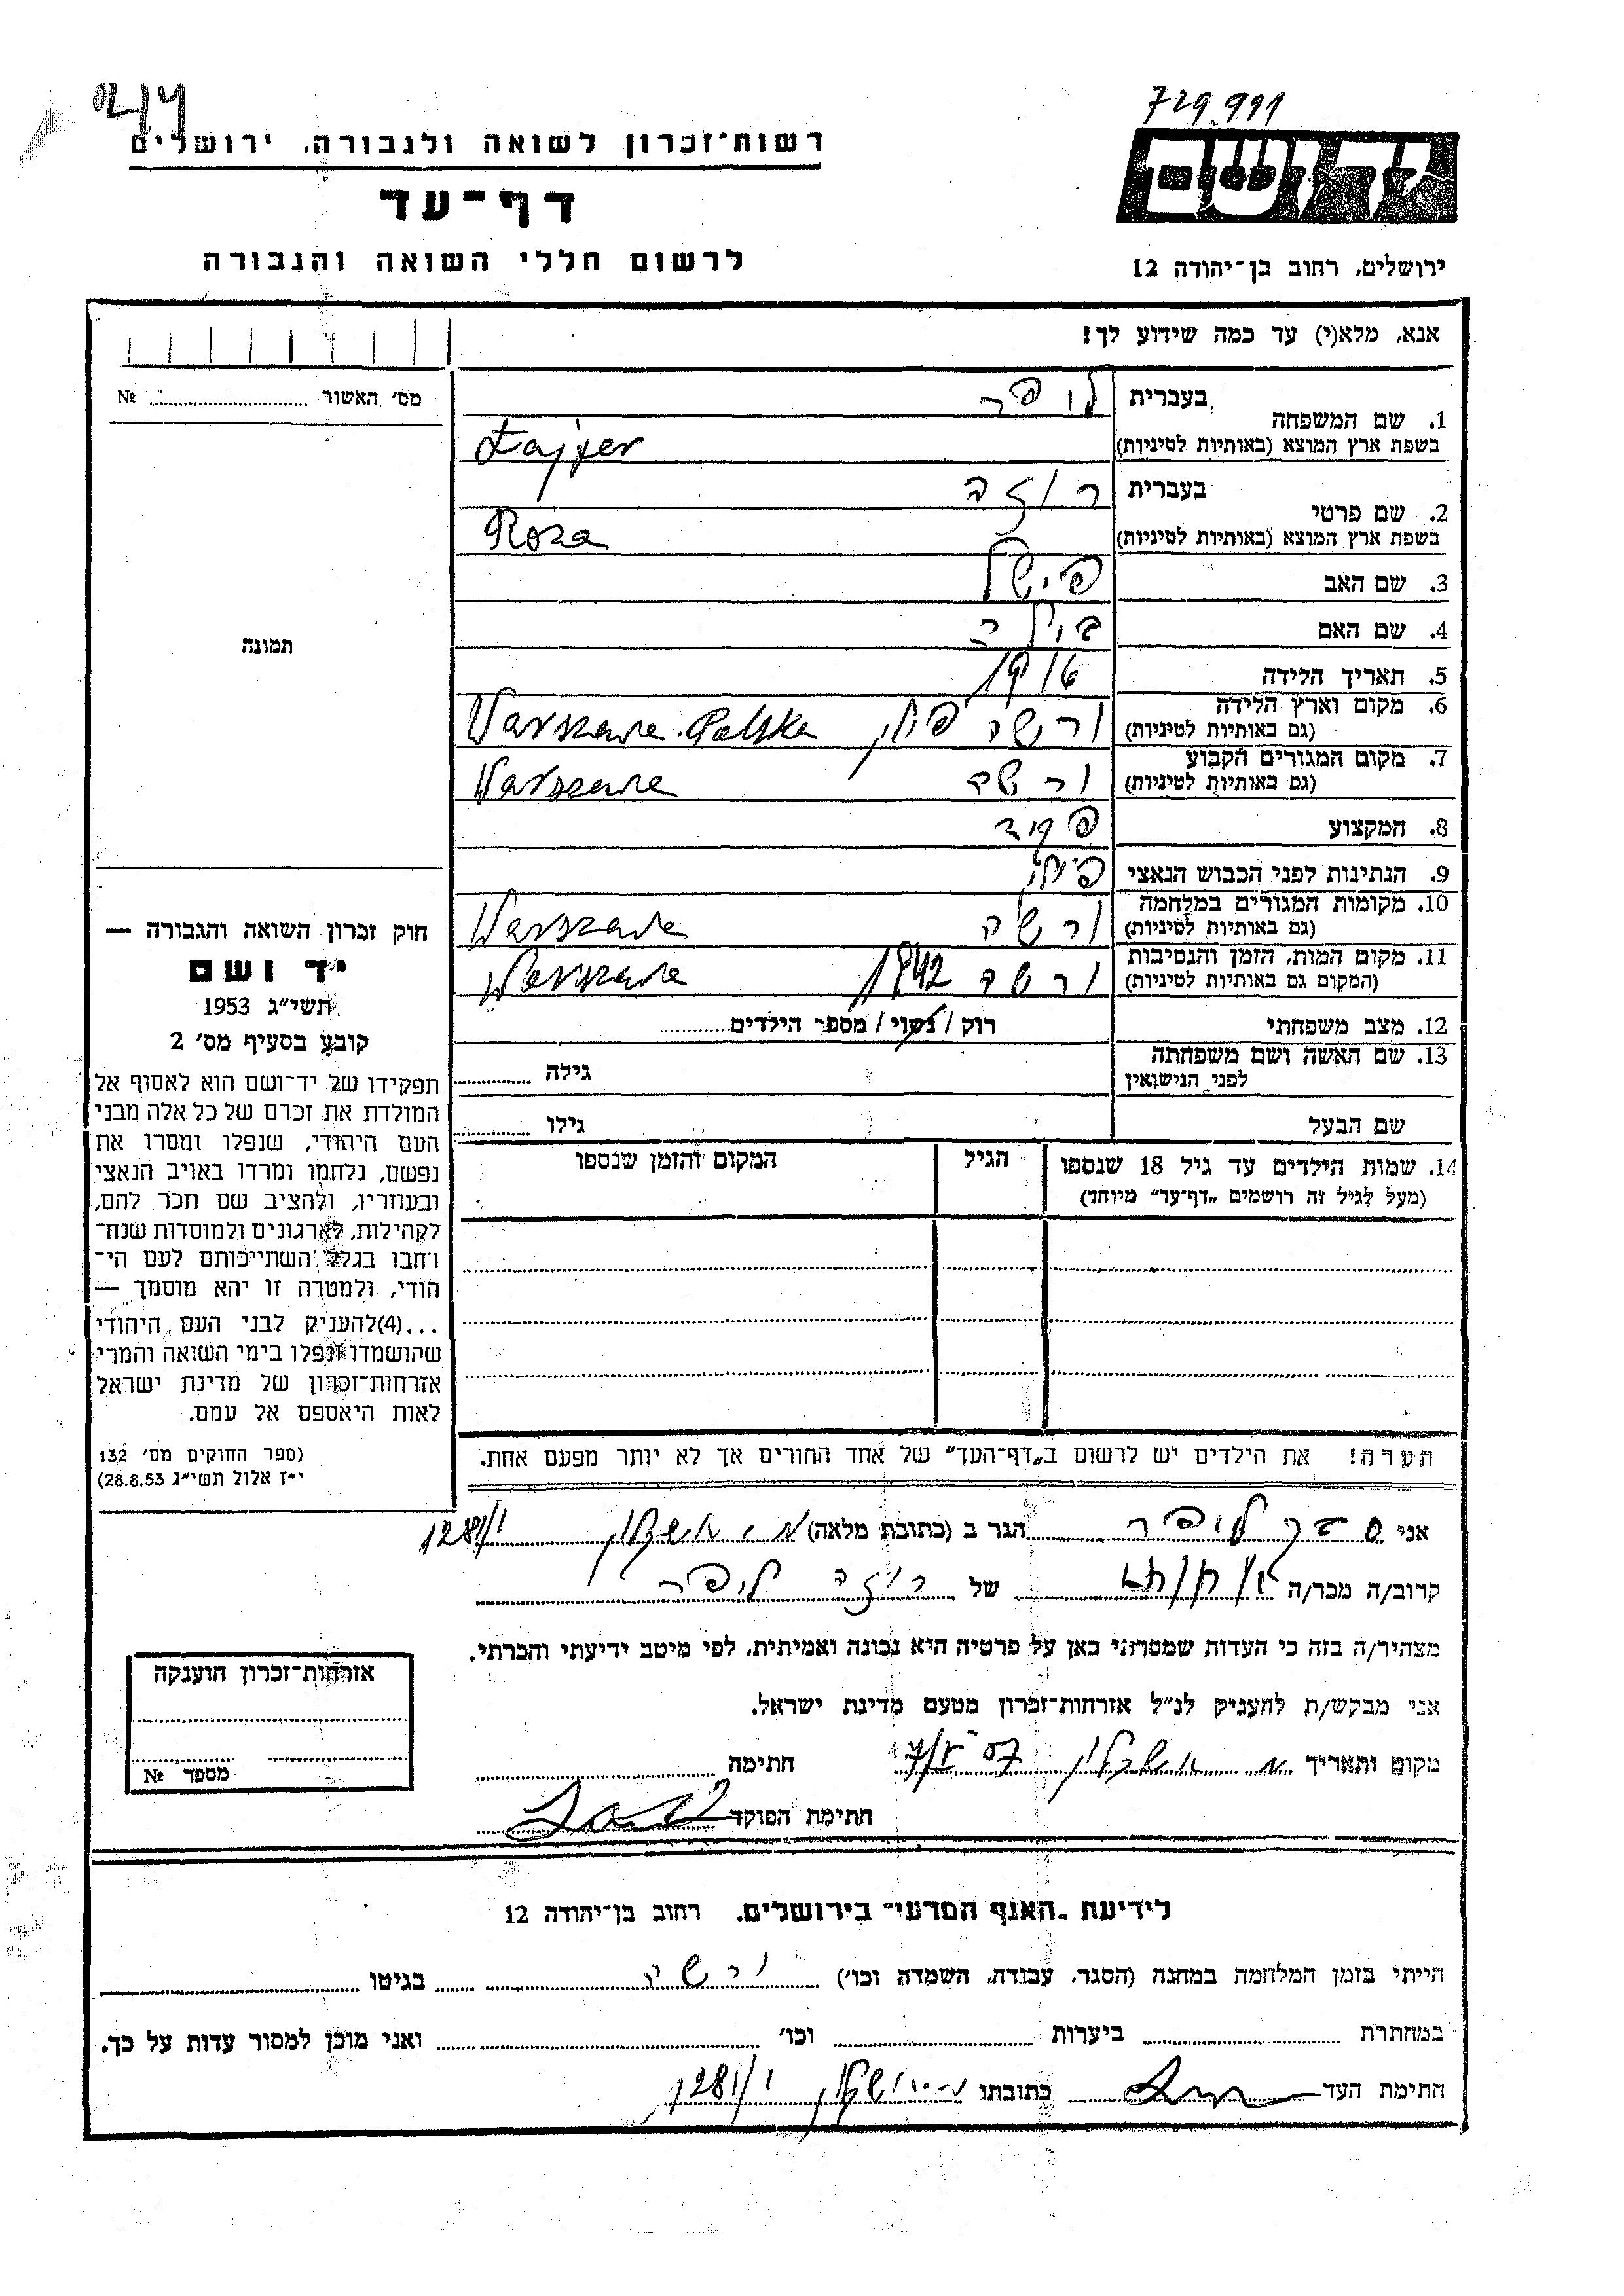 729.991
רשות־זכרון לשואה ולגבורה. ירושלים
דף־עד
לרשום חללי השואה והגבורה
ידושם
ירושלים, רחוב בן־יהודה 12
אנא, מלא(י) עד כמה שידוע לך!
מס' האשור ........ №
תמונה
1. שם המשפחה
בעברית
בשפת ארץ המוצא (באותיות לטיניות)
Łajfer
2. שם פרטי
בעברית רוזה
בשפת ארץ המוצא (באותיות לטיניות)
Roza
3. שם האב פישל
4. שם האם
5. תאריך הלידה 1916
6. מקום וארץ הלידה
(גם באותיות לטיניות)
ורשה פולין Warszawa Polska
7. מקום המגורים הקבוע
(גם באותיות לטיניות)
ורשה Warszawa
8. המקצוע
9. הנתינות לפני הכבוש הנאצי
10. מקומות המגורים במלחמה
(גם באותיות לטיניות)
ורשה Warszawa
11. מקום המות, הזמן והנסיבות
(המקום גם באותיות לטיניות)
ורשה 1942 Warszawa
12. מצב משפחתי
רוק / נשוי / מספר הילדים
13. שם האשה ושם משפחתה
לפני הנישואין
גילה
שם הבעל
גילו
14. שמות הילדים עד גיל 18 שנספו
(מעל לגיל זה רושמים „דף־עד" מיוחד)
הגיל
המקום והזמן שנספו
הערה! את הילדים יש לרשום ב„דף־העד" של אחד ההורים אך לא יותר מפעם אחת.
חוק זכרון השואה והגבורה —
יד ושם
תשי״ג 1953
קובע בסעיף מס' 2
תפקידו של יד־ושם הוא לאסוף אל
המולדת את זכרם של כל אלה מבני
העם היהודי, שנפלו ומסרו את
נפשם, נלחמו ומרדו באויב הנאצי
ובעוזריו, ולהציב שם וזכר להם,
לקהילות, לארגונים ולמוסדות שנח־
רבו בגלל השתייכותם לעם הי־
הודי, ולמטרה זו יהא מוסמך —
...(4)להעניק לבני העם היהודי
שהושמדו ונפלו בימי השואה והמרי
אזרחות־זכרון של מדינת ישראל
לאות היאספם אל עמם.
(ספר החוקים מס' 132
י״ז אלול תשי״ג 28.8.53)
אני לייפר הגר ב (כתובת מלאה) אשקלון 1281/1
קרוב/ה מכר/ה של רוזה לייפר
מצהיר/ה בזה כי העדות שמסרתי כאן על פרטיה היא נכונה ואמיתית, לפי מיטב ידיעתי והכרתי.
אני מבקש/ת להעניק לנ״ל אזרחות־זכרון מטעם מדינת ישראל.
מקום ותאריך אשקלון חתימה
חתימת הפוקד
אזרחות־זכרון הוענקה
מספר №
לידיעת „האגף המדעי" בירושלים. רחוב בן־יהודה 12
הייתי בזמן המלחמה במחנה (הסגר, עבודה, השמדה וכו') ורשה בגיטו
במחתרת ביערות וכו' ואני מוכן למסור עדות על כך.
חתימת העד כתובתו אשקלון 1281/1